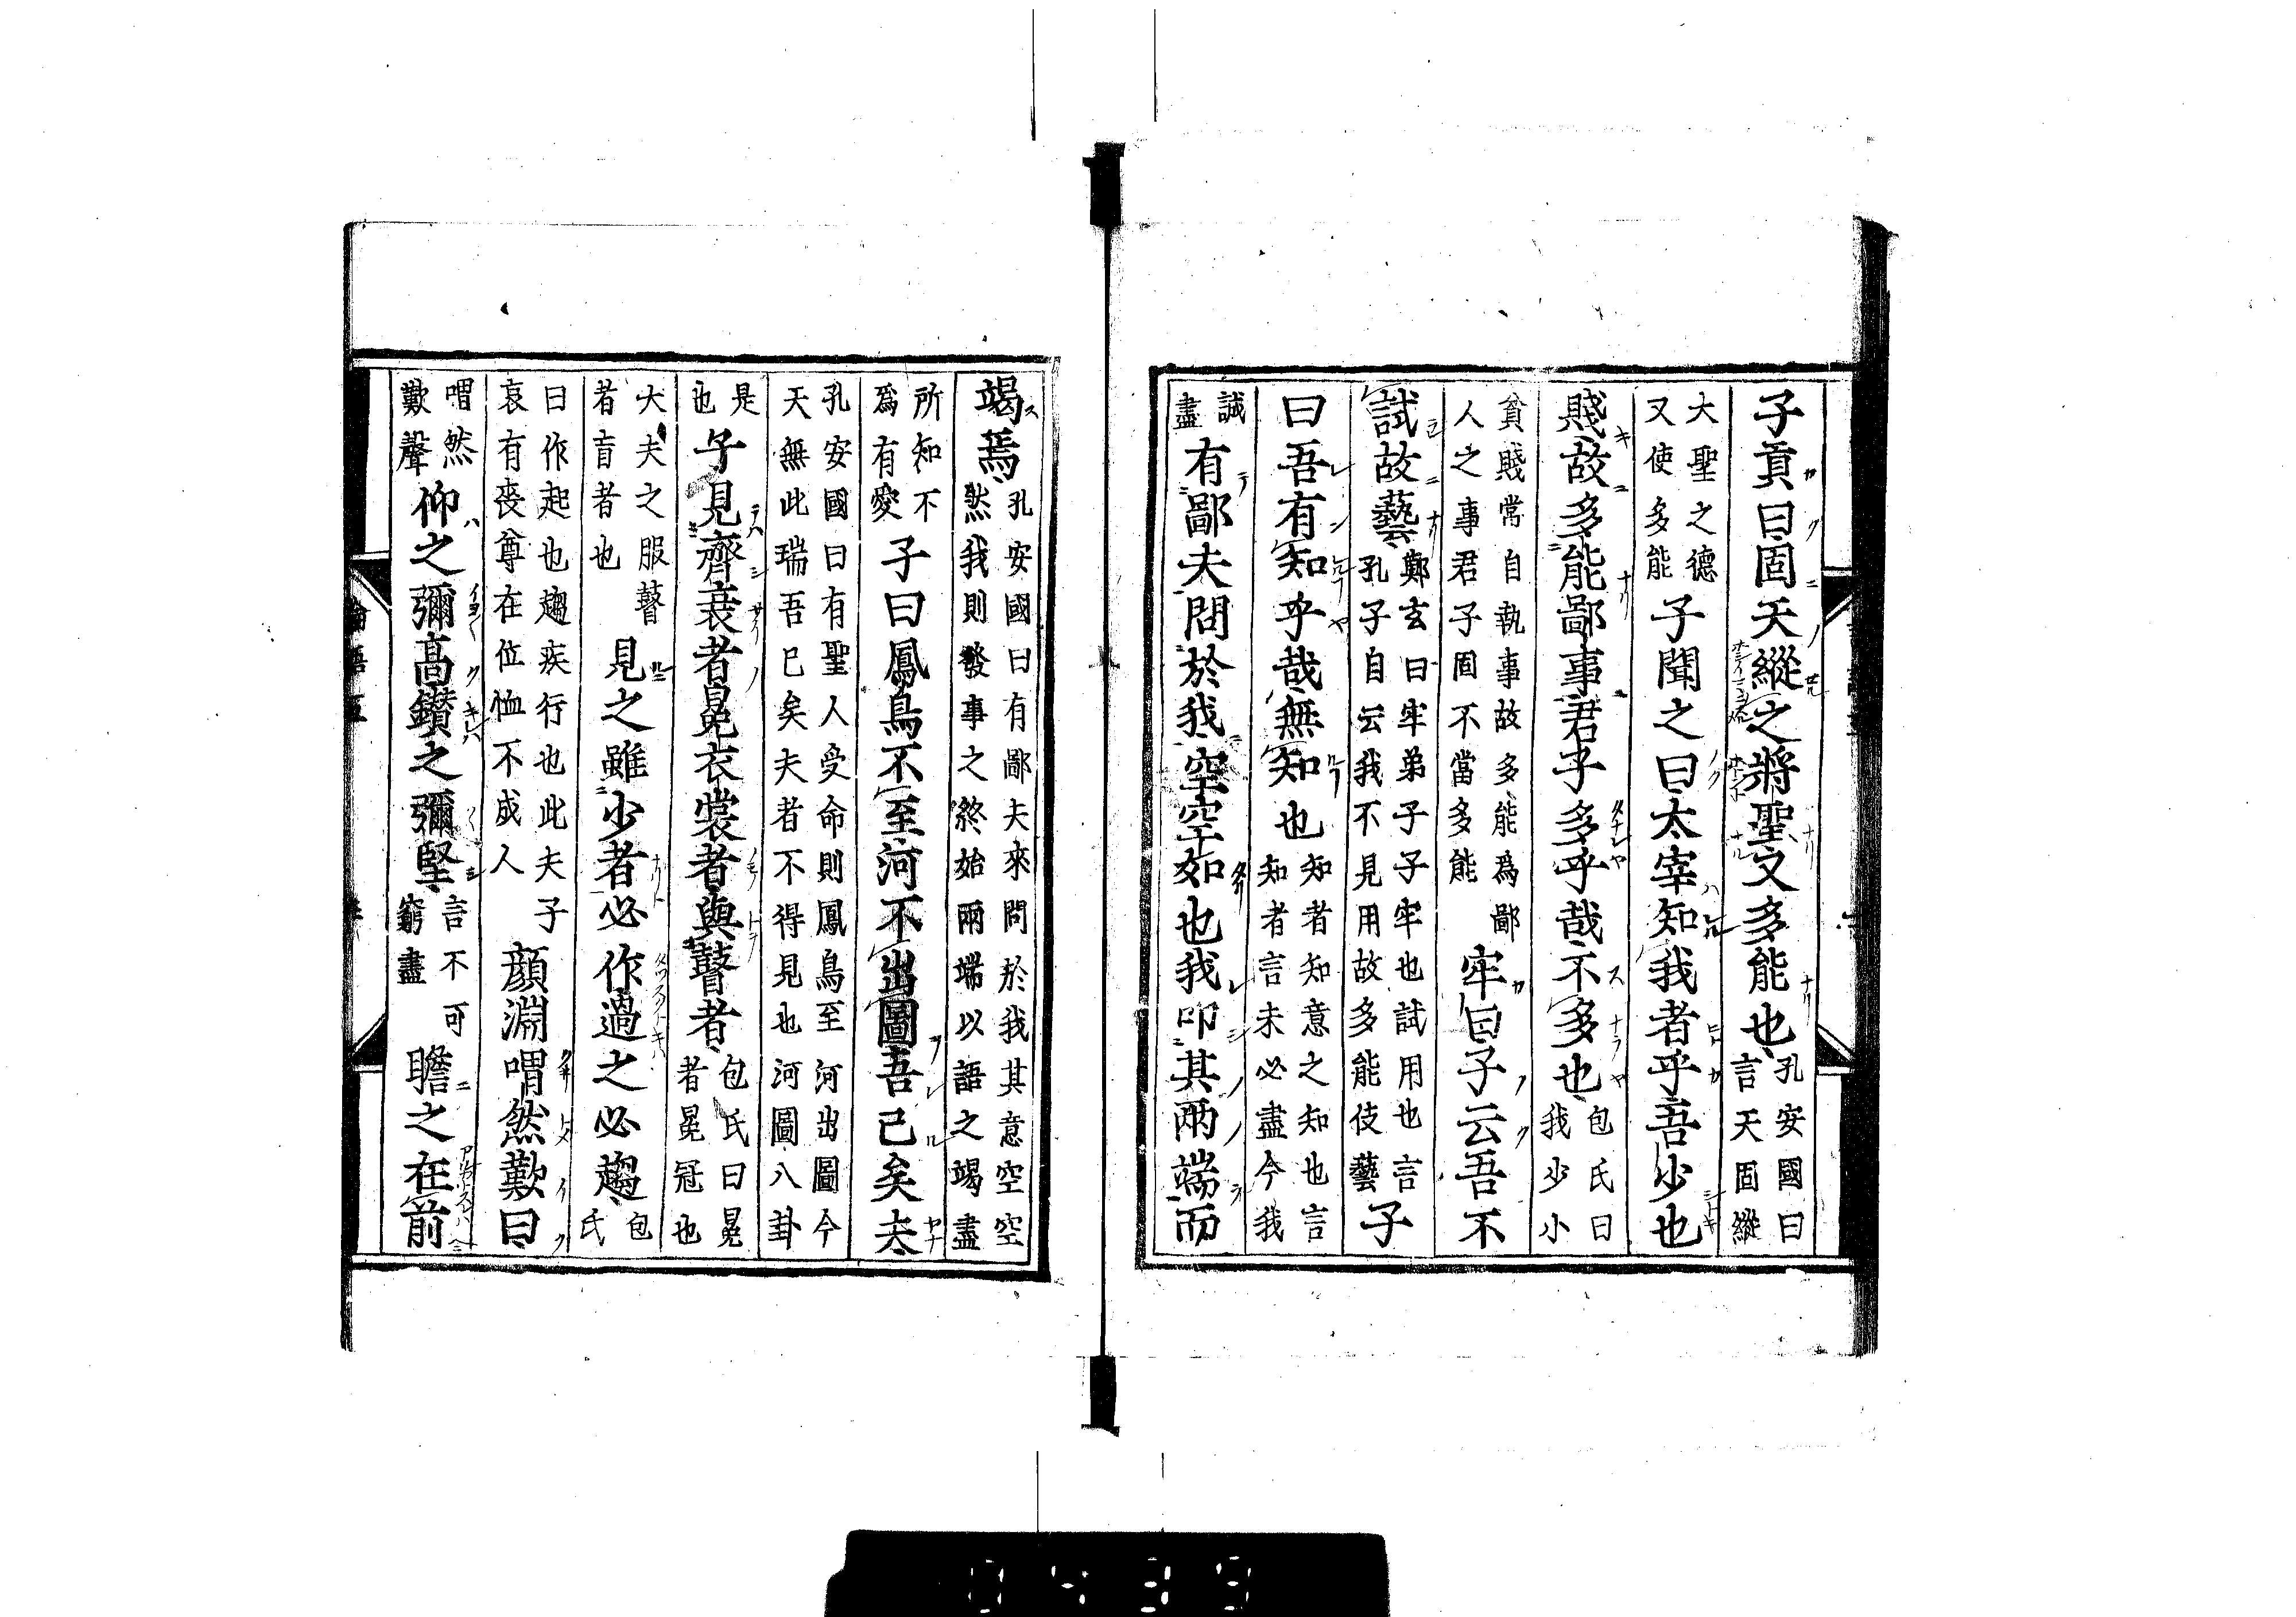 子貢曰固天縱之將聖又多能也孔安國曰言天固縱
大聖之德又使多能子聞之曰太宰知我者乎吾少也
賤故多能鄙事君子多乎哉不多也包氏曰我少小
貧賤常自執事故多能爲鄙人之事君子固不當多能牢曰子云吾不
試故藝鄭玄曰牢弟子子牢也試用也言孔子自云我不見用故多能伎藝子
曰吾有知乎哉無知也知者知意之知也言知者言未必盡今我
誠盡有鄙夫問於我空空如也我叩其兩端而
竭焉孔安國曰有鄙夫來問於我其意空空然我則發事之終始兩端以語之竭盡
所知不爲有愛子曰鳳鳥不至河不出圖吾已矣夫
孔安國曰有聖人受命則鳳鳥至河出圖今天無此瑞吾已矣夫者不得見也河圖八卦
是也子見齊衰者冕衣裳者與瞽者包氏曰冕者冕冠也
大夫之服瞽者盲者也見之雖少者必作過之必趨包氏
曰作起也趨疾行也此夫子哀有喪尊在位恤不成人顏淵喟然歎曰
喟然歎聲仰之彌高鑽之彌堅言不可窮盡瞻之在前
0439